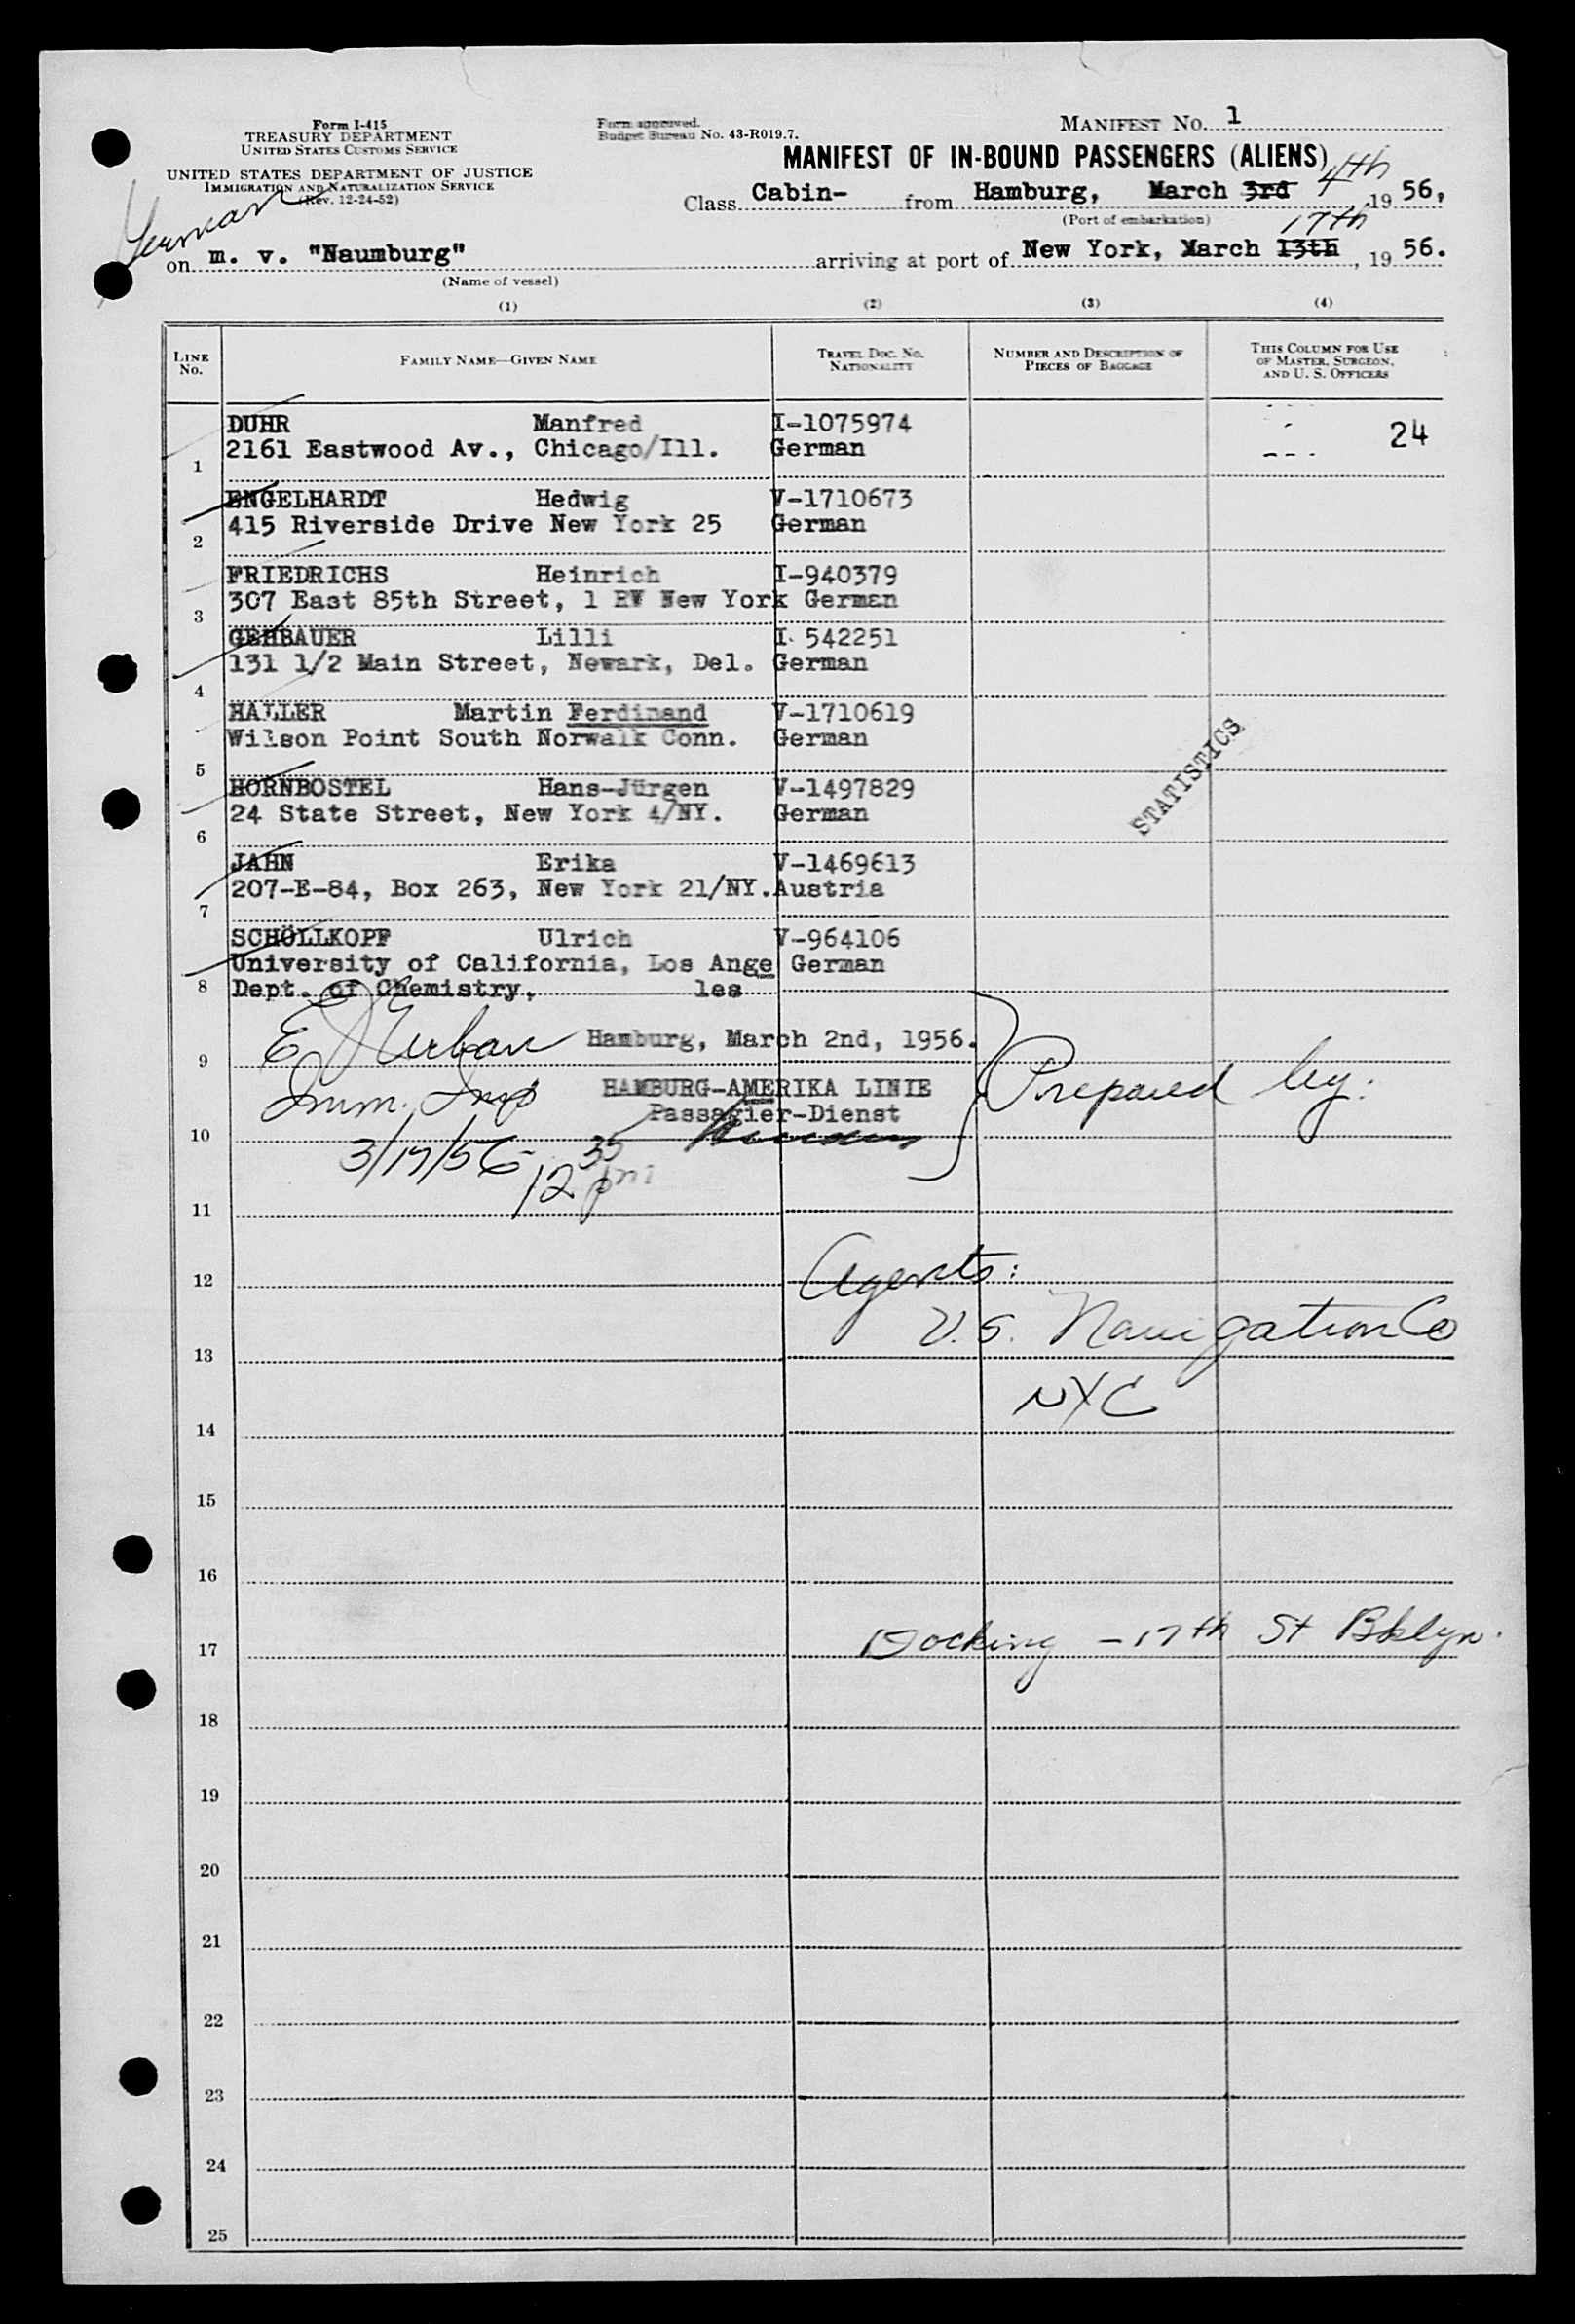 Form I-415
TREASURY DEPARTMENT
UNITED STATES CUSTOMS SERVICE
UNITED STATES DEPARTMENT OF JUSTICE
IMMIGRATION AND NATURALIZATION SERVICE
(Rev. 12-24-52)
German
Form approved.
Budget Bureau No. 43-R019.7.
MANIFEST NO. 1
MANIFEST OF IN-BOUND PASSENGERS (ALIENS)
Class Cabin- from Hamburg, March 3rd 4th 1956,
(Port of embarkation)
on m. v. "Naumburg" arriving at port of New York, March 13th 17th, 1956.
(Name of vessel)
(1) (2) (3) (4)
LINE NO.
FAMILY NAME—GIVEN NAME
TRAVEL DOC. NO. NATIONALITY
NUMBER AND DESCRIPTION OF PIECES OF BAGGAGE
THIS COLUMN FOR USE OF MASTER, SURGEON, AND U. S. OFFICERS
DUHR Manfred I-1075974 24
1 2161 Eastwood Av., Chicago/Ill. German
ENGELHARDT Hedwig V-1710673
2 415 Riverside Drive New York 25 German
FRIEDRICHS Heinrich I-940379
3 307 East 85th Street, 1 RW New York German
GEHBAUER Lilli I 542251
4 131 1/2 Main Street, Newark, Del. German
HALLER Martin Ferdinand V-1710619
5 Wilson Point South Norwalk Conn. German
STATISTICS
HORNBOSTEL Hans-Jürgen V-1497829
6 24 State Street, New York 4/NY. German
JAHN Erika V-1469613
7 207-E-84, Box 263, New York 21/NY. Austria
SCHÖLLKOPF Ulrich V-964106
University of California, Los Ange German
8 Dept. of Chemistry, les
E Urban Hamburg, March 2nd, 1956.
9
Imm. Insp HAMBURG-AMERIKA LINIE Prepared by:
Passagier-Dienst
10
3/17/56 - 12 35 pm
11
Agents:
12
U.S. Navigation Co
13
NYC
14
15
16
Docking - 17th St Bklyn.
17
18
19
20
21
22
23
24
25